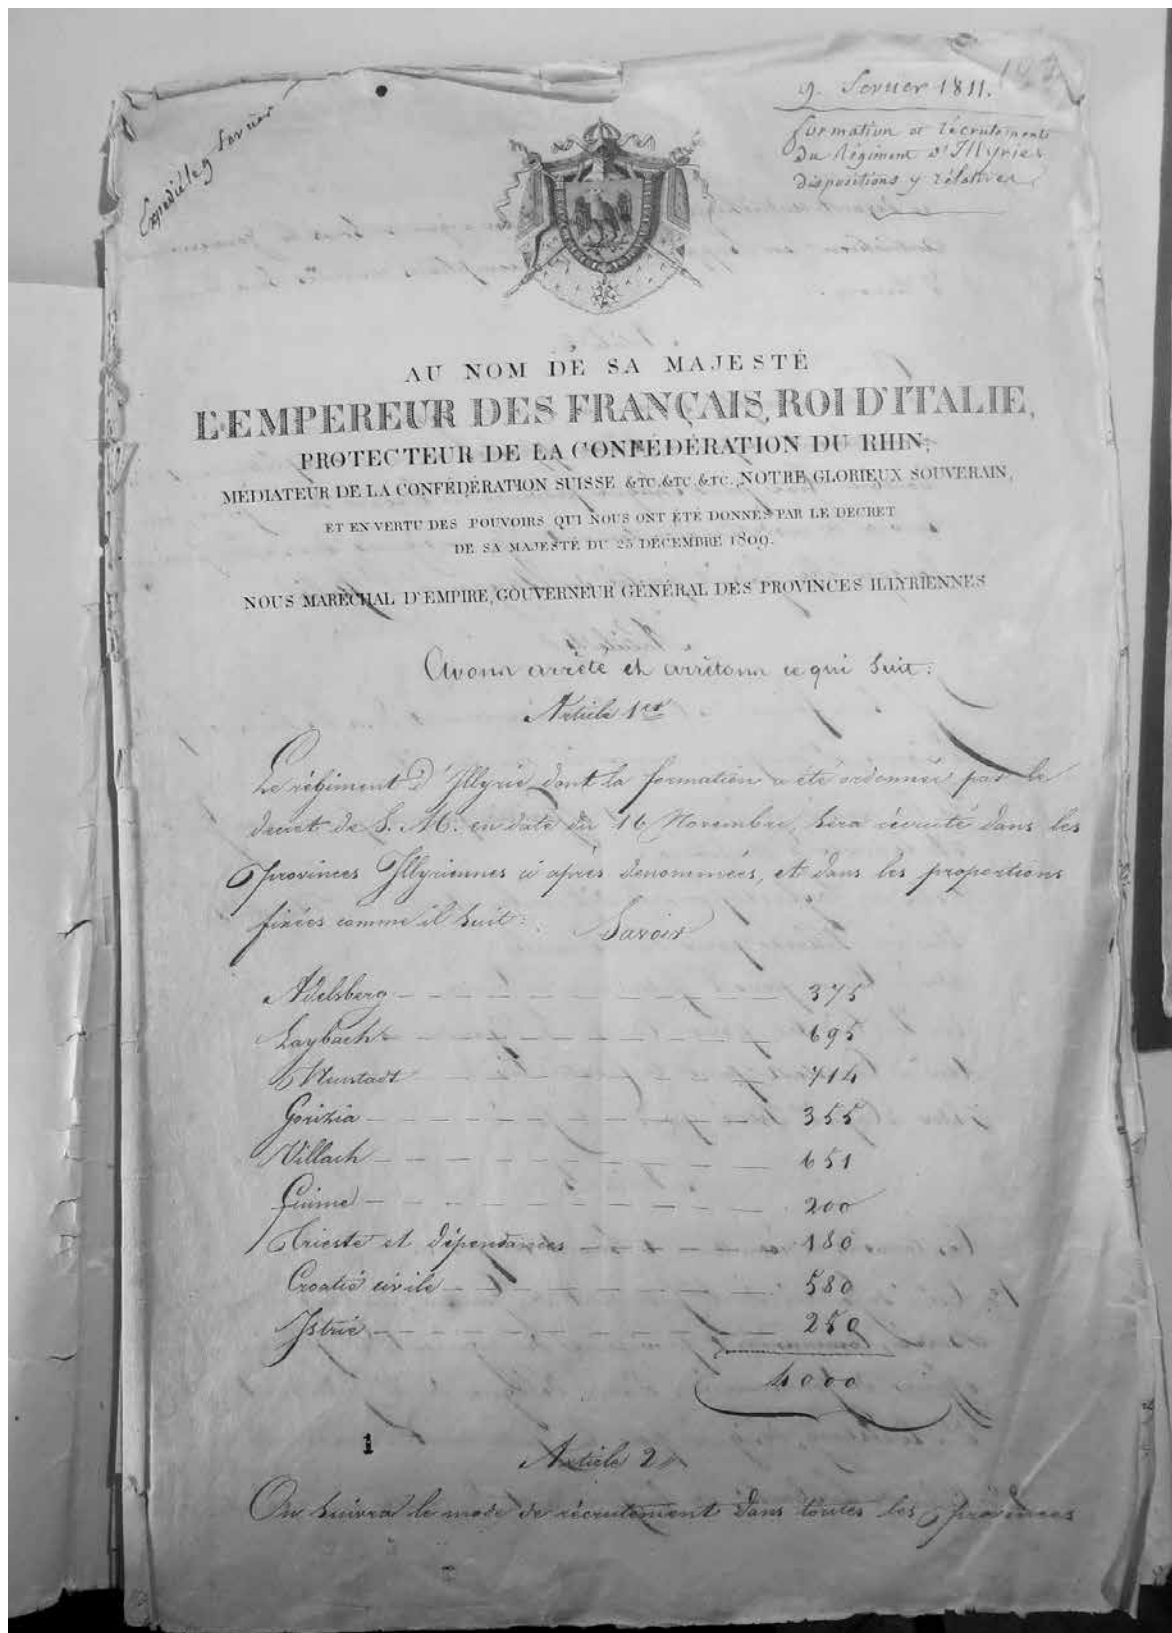 Expedié le 9 Fevrier
9. Fevrier 1811.
formation et récrutements
du Régiment d'Illyrie
dispositions y rélatives
AU NOM DE SA MAJESTÉ
L'EMPEREUR DES FRANÇAIS, ROI D'ITALIE,
PROTECTEUR DE LA CONFÉDÉRATION DU RHIN,
MÉDIATEUR DE LA CONFÉDÉRATION SUISSE &TC. &TC. &TC., NOTRE GLORIEUX SOUVERAIN,
ET EN VERTU DES POUVOIRS QUI NOUS ONT ÉTÉ DONNÉS PAR LE DÉCRET
DE SA MAJESTÉ DU 25 DÉCEMBRE 1809.
NOUS MARÉCHAL D'EMPIRE, GOUVERNEUR GÉNÉRAL DES PROVINCES ILLYRIENNES
Avons arrêté et arrêtons ce qui suit:
Article 1er
Le régiment d'Illyrie dont la formation a été ordonnée par le
décret de S. M. en date du 16 Novembre, sera récruté dans les
Provinces Illyriennes ci après dénommées, et dans les proportions
fixées comme il suit: Savoir
Adelsberg 375
Laybach 695
Neustadt 714
Gorizia 355
Villach 651
Fiume 200
Trieste et dépendances 180
Croatie civile 580
Istrie 250
4000
1
Article 2
On suivra le mode de récrutement dans toutes les provinces